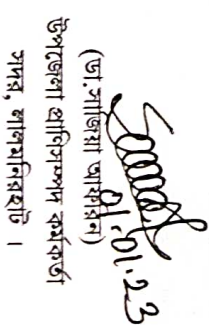 01.01.23
(ডা.সাজিয়া আফরিন)
উপজেলা প্রাণিসম্পদ কর্মকর্তা
সদর, লালমনিরহাট ।